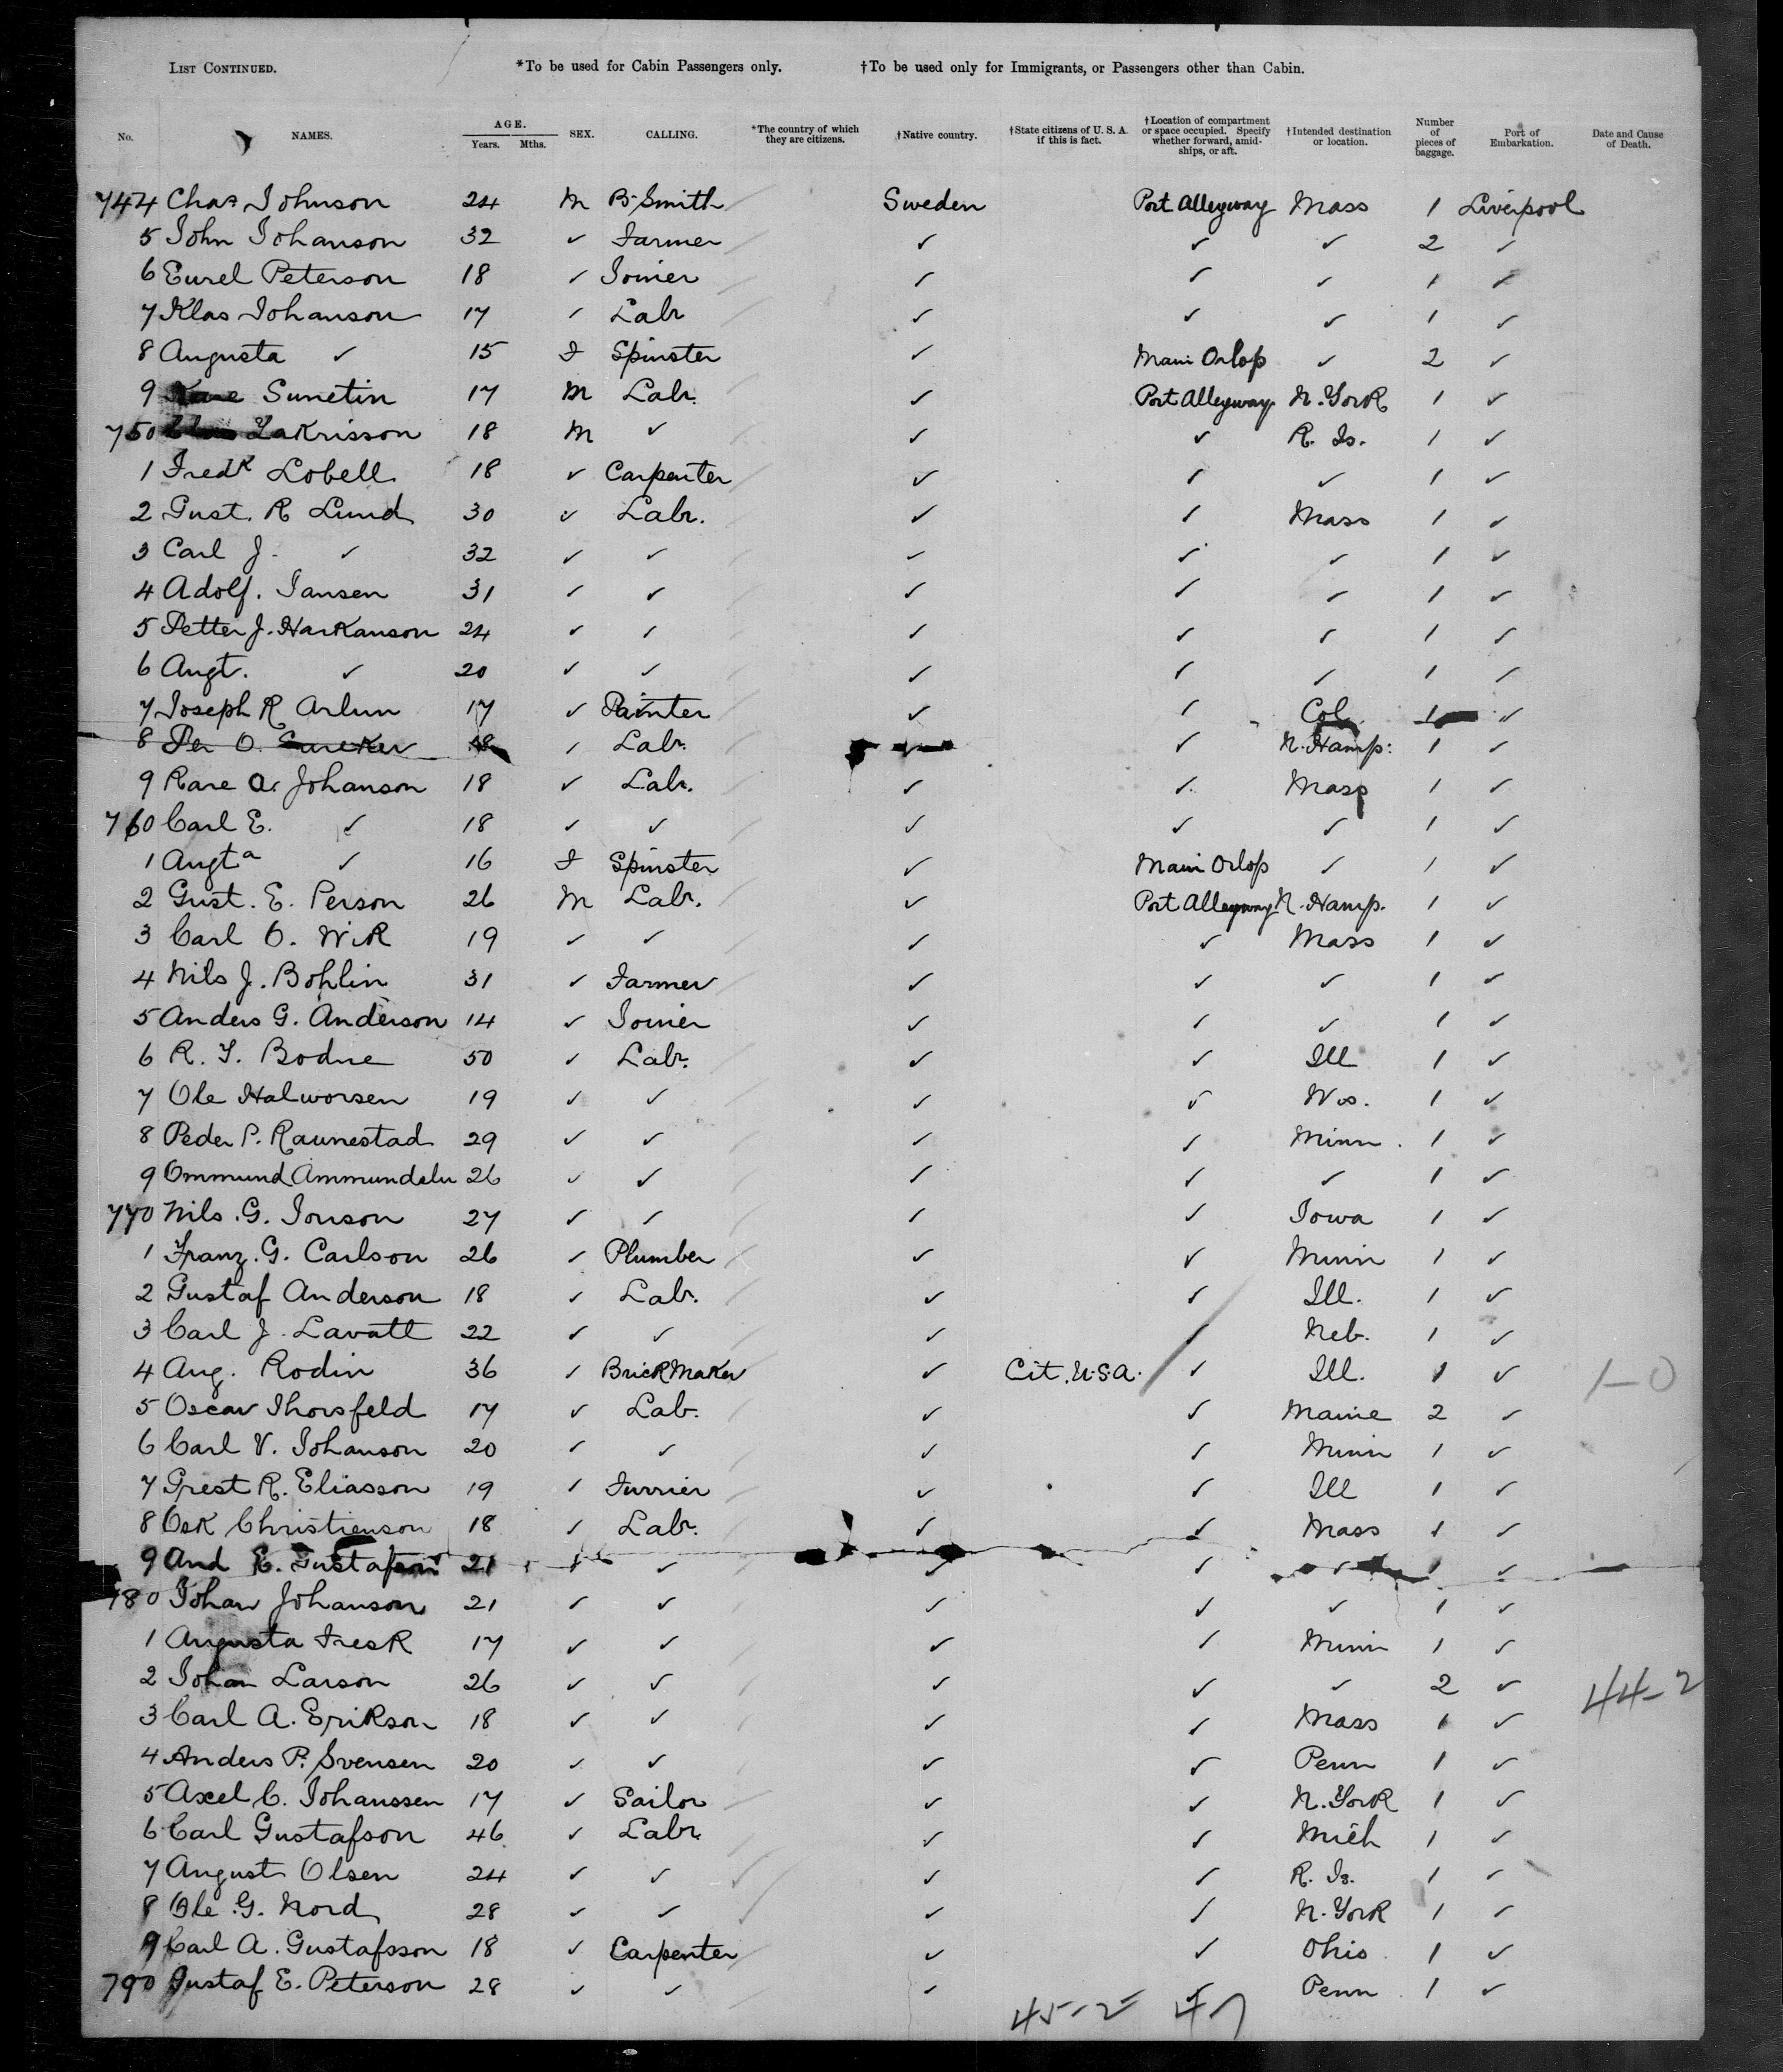 LIST CONTINUED. *To be used for Cabin Passengers only. †To be used only for Immigrants, or Passengers other than Cabin.
No. NAMES. AGE. Years. Mths. SEX. CALLING. *The country of which they are citizens. †Native country. †State citizens of U. S. A. if this is fact. †Location of compartment or space occupied. Specify whether forward, amidships, or aft. †Intended destination or location. Number of pieces of baggage. Port of Embarkation. Date and Cause of Death.
744 Chas Johnson 24 M B-Smith Sweden Port Alleyway Mass 1 Liverpool
5 John Johanson 32 ✓ Farmer ✓ ✓ ✓ 2 ✓
6 Eurel Peterson 18 ✓ Joiner ✓ ✓ ✓ 1 ✓
7 Klas Johanson 17 ✓ Labr ✓ ✓ ✓ 1 ✓
8 Augusta ✓ 15 F Spinster ✓ Main Orlop ✓ 2 ✓
9 Sunetin 17 M Labr. ✓ Port Alleyway N. York 1 ✓
750 Zakrisson 18 M ✓ ✓ ✓ R. Is. 1 ✓
1 Fredk Lobell 18 ✓ Carpenter ✓ ✓ ✓ 1 ✓
2 Gust. R Lund 30 ✓ Labr. ✓ ✓ Mass 1 ✓
3 Carl J. ✓ 32 ✓ ✓ ✓ ✓ ✓ 1 ✓
4 Adolf. Jansen 31 ✓ ✓ ✓ ✓ ✓ 1 ✓
5 Petter J. Harkanson 24 ✓ ✓ ✓ ✓ ✓ 1 ✓
6 Augt. ✓ 20 ✓ ✓ ✓ ✓ ✓ 1 ✓
7 Joseph R Arlun 17 ✓ Painter ✓ ✓ Col. 1 ✓
8 Per O. 18 ✓ Labr. ✓ ✓ N. Hamp: 1 ✓
9 Kare A. Johanson 18 ✓ Labr. ✓ ✓ Mass 1 ✓
760 Carl E. ✓ 18 ✓ ✓ ✓ ✓ ✓ 1 ✓
1 Augta ✓ 16 F Spinster ✓ Main Orlop ✓ 1 ✓
2 Gust. E. Person 26 M Labr. ✓ Port Alleyway N. Hamp. 1 ✓
3 Carl O. Wik 19 ✓ ✓ ✓ ✓ Mass 1 ✓
4 Nils J. Bohlin 31 ✓ Farmer ✓ ✓ ✓ 1 ✓
5 Anders G. Anderson 14 ✓ Joiner ✓ ✓ ✓ 1 ✓
6 R. Y. Bodne 50 ✓ Labr. ✓ ✓ Ill 1 ✓
7 Ole Halworsen 19 ✓ ✓ ✓ ✓ Wis. 1 ✓
8 Peder P. Raunestad 29 ✓ ✓ ✓ ✓ Minn. 1 ✓
9 Ommund Ammundelu 26 ✓ ✓ ✓ ✓ ✓ 1 ✓
770 Nils. G. Jonson 27 ✓ ✓ ✓ ✓ Iowa 1 ✓
1 Franz. G. Carlson 26 ✓ Plumber ✓ ✓ Minn 1 ✓
2 Gustaf Anderson 18 ✓ Labr. ✓ ✓ Ill. 1 ✓
3 Carl J. Lavatt 22 ✓ ✓ ✓ ✓ Neb. 1 ✓
4 Aug. Rodin 36 ✓ BrickMaker ✓ Cit. U.S.A. ✓ Ill. 1 ✓ 1-0
5 Oscar Thorsfeld 17 ✓ Lab. ✓ ✓ Maine 2 ✓
6 Carl V. Johanson 20 ✓ ✓ ✓ ✓ Minn 1 ✓
7 Grest R. Eliasson 19 ✓ Furrier ✓ ✓ Ill 1 ✓
8 Osk Christienson 18 ✓ Labr. ✓ ✓ Mass 1 ✓
9 And E. Gustafson 21 ✓ ✓ ✓ ✓ ✓ 1 ✓
780 Johan Johanson 21 ✓ ✓ ✓ ✓ ✓ 1 ✓
1 Augusta Fresk 17 ✓ ✓ ✓ ✓ Minn 1 ✓
2 Johan Larson 26 ✓ ✓ ✓ ✓ ✓ 2 ✓ 44-2
3 Carl A. Erikson 18 ✓ ✓ ✓ ✓ Mass 1 ✓
4 Anders P. Svensen 20 ✓ ✓ ✓ ✓ Penn 1 ✓
5 Axel C. Johanssen 17 ✓ Sailor ✓ ✓ N. York 1 ✓
6 Carl Gustafson 46 ✓ Labr. ✓ ✓ Mich 1 ✓
7 August Olsen 24 ✓ ✓ ✓ ✓ R. Is. 1 ✓
8 Ole. G. Nord 28 ✓ ✓ ✓ ✓ N. York 1 ✓
9 Carl A. Gustafsson 18 ✓ Carpenter ✓ ✓ Ohio 1 ✓
790 Gustaf E. Peterson 28 ✓ ✓ ✓ ✓ Penn. 1 ✓
45-2 47